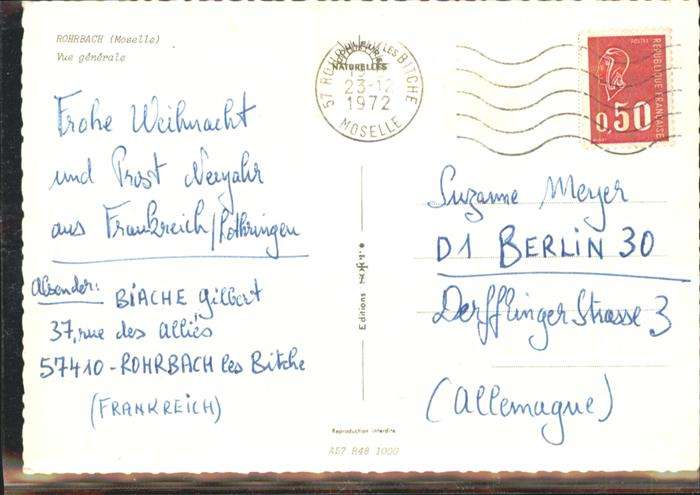 ROHRBACH (Moselle)
Vue générale
Frohe Weihnacht
und Prost Neujahr
aus Frankreich/Lothringen
Absender: BIACHE Gilbert
37, rue des Alliés
57410 - ROHRBACH les Bitche
(FRANKREICH)
57 ROHRBACH LES BITCHE
NATURELLES
23-12
1972
MOSELLE
POSTES
RÉPUBLIQUE FRANÇAISE
0,50
Suzanne Meyer
D1 BERLIN 30
Derfflinger Strasse 3
(Allemagne)
Editions
Reproduction interdite
A57 R48 1000